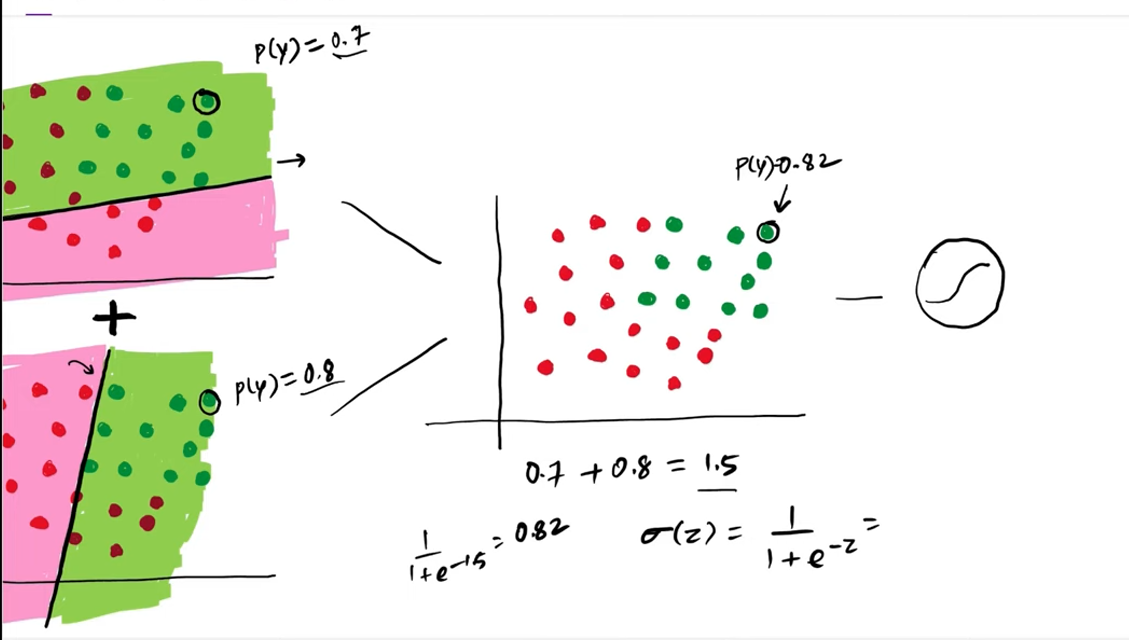 P(y) = 0.7
P(y) = 0.8
P(y) 0.82
0.7 + 0.8 = 1.5
1/1+e^-1.5 = 0.82
σ(z) = 1/1+e^-z =